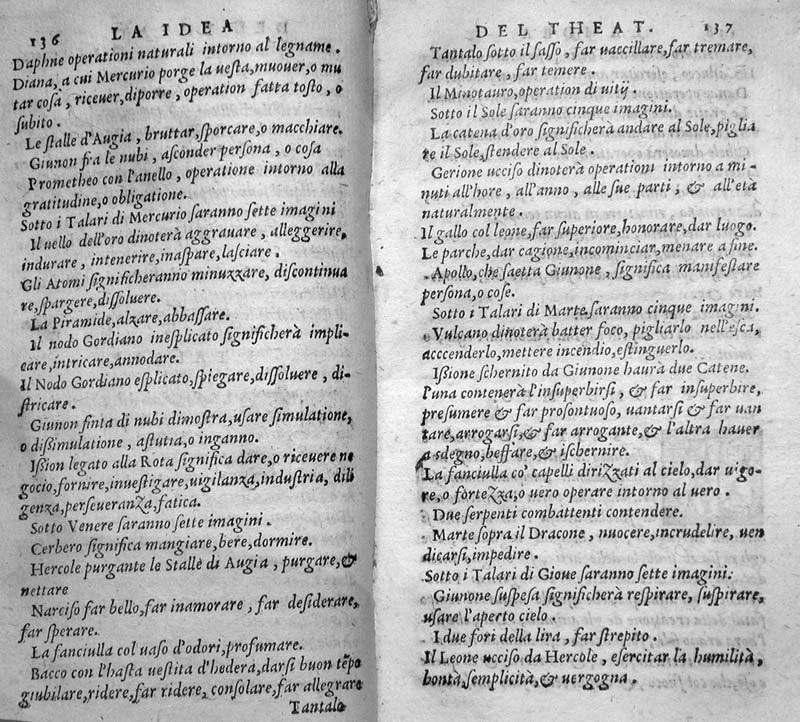 136 LA IDEA
Daphne operationi naturali intorno al legname.
Diana, a cui Mercurio porge la uesta, muouer, o mu
tar cosa, riceuer, diporre, operation fatta tosto, o
subito.
Le stalle d'Augia, bruttar, sporcare, o macchiare.
Giunon fra le nubi, asconder persona, o cosa
Prometheo con l'anello, operatione intorno alla
gratitudine, o obligatione.
Sotto i Talari di Mercurio saranno sette imagini
Il uello dell'oro dinoterà aggrauare, alleggerire,
indurare, intenerire, inaspare, lasciare.
Gli Atomi significheranno minuzzare, discontinua
re, spargere, dissoluere.
La Piramide, alzare, abbassare.
Il nodo Gordiano inesplicato significherà impli-
care, intricare, annodare.
Il Nodo Gordiano esplicato, spiegare, dissoluere, di-
stricare.
Giunon finta di nubi dimostra, usare simulatione,
o dissimulatione, astutia, o inganno.
Ission legato alla Rota significa dare, o riceuere ne
gocio, fornire, inuestigare, uigilanza, industria, dili
genza, perseueranza, fatica.
Sotto Venere saranno sette imagini.
Cerbero significa mangiare, bere, dormire.
Hercole purgante le Stalle di Augia, purgare, &
nettare
Narciso far bello, far inamorare, far desiderare,
far sperare.
La fanciulla col uaso d'odori, profumare.
Bacco con l'hasta uestita d'hedera, darsi buon tẽpo
giubilare, ridere, far ridere, consolare, far allegrare
Tantalo
DEL THEAT. 137
Tantalo sotto il sasso, far uacillare, far tremare,
far dubitare, far temere.
Il Minotauro, operation di uitij.
Sotto il Sole saranno cinque imagini.
La catena d'oro significherà andare al Sole, piglia
re il Sole, stendere al Sole.
Gerione ucciso dinoterà operationi intorno a mi-
nuti all'hore, all'anno, alle sue parti, & all'età
naturalmente.
Il gallo col leone, far superiore, honorare, dar luogo.
Le parche, dar cagione, incominciar, menare a fine.
Apollo, che saetta Giunone, significa manifestare
persona, o cose.
Sotto i Talari di Marte saranno cinque imagini.
Vulcano dinoterà batter foco, pigliarlo nell'esca,
acccenderlo, mettere incendio, estinguerlo.
Issione schernito da Giunone haurà due Catene.
l'una contenerà l'insuperbirsi, & far insuperbire,
presumere & far prosontuoso, uantarsi & far uan
tare, arrogarsi, & far arrogante, & l'altra hauer
a sdegno, beffare, & ischernire.
La fanciulla co' capelli dirizzati al cielo, dar uigo-
re, o fortezza, o uero operare intorno al uero.
Due serpenti combattenti contendere.
Marte sopra il Dracone, nuocere, incrudelire, uen
dicarsi, impedire.
Sotto i Talari di Gioue saranno sette imagini:
Giunone suspesa significherà respirare, suspirare,
usare l'aperto cielo.
I due fori della lira, far strepito.
Il Leone ucciso da Hercole, esercitar la humilità,
bontà, semplicità, & uergogna.